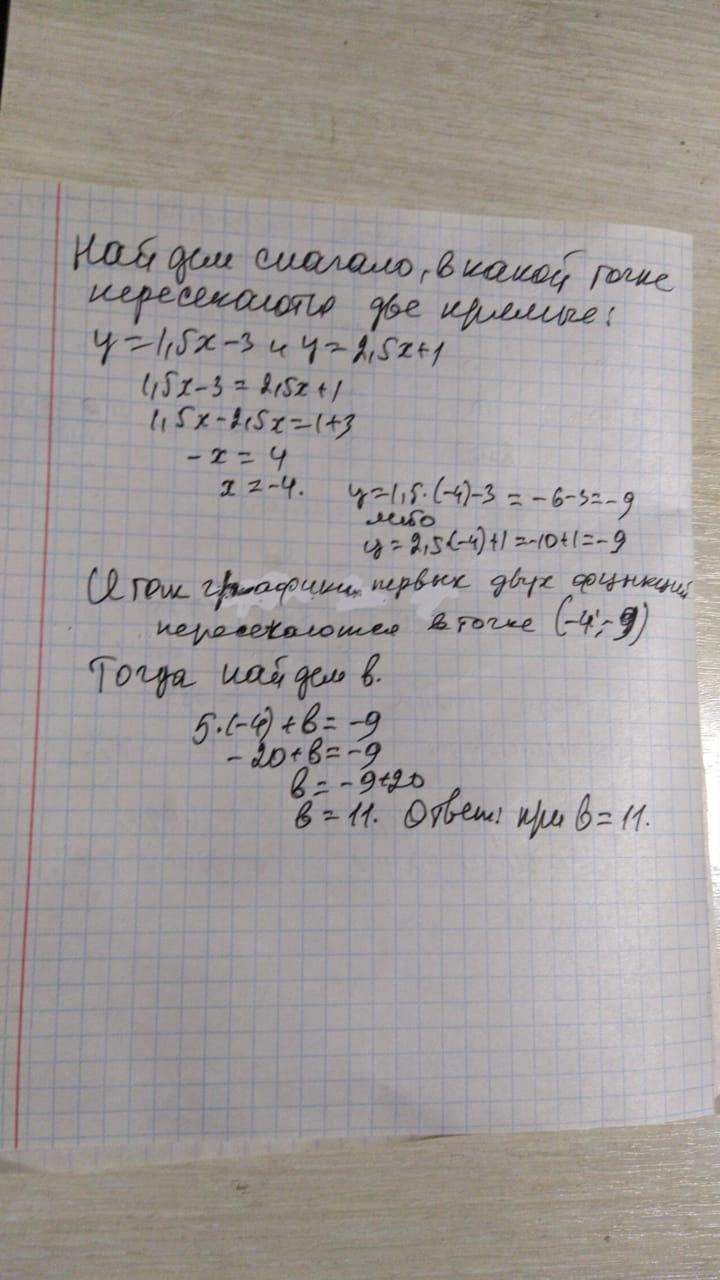 Найдем сначало, в какой точке
пересекаются две прямые:
y=1,5x-3 и y=2,5x+1
1,5x-3=2,5x+1
1,5x-2,5x=1+3
-x=4
x=-4.
y=1,5·(-4)-3=-6-3=-9
либо
y=2,5·(-4)+1=-10+1=-9
Итак графики первых двух функций
пересекаются в точке (-4;-9)
Тогда найдем в.
5·(-4)+в=-9
-20+в=-9
в=-9+20
в=11. Ответ: при в=11.